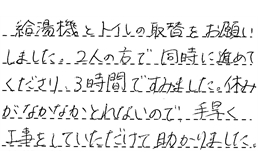 給湯機とトイレの取替をお願い
しました。2人の方で同時に進めて
くださり、3時間ですみました。休み
がなかなかとれないので、手早く
工事をしていただけて助かりました。